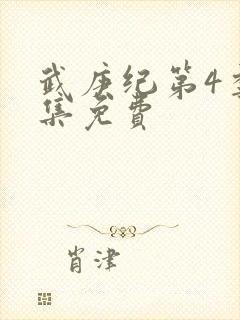 武庚纪第4季
集免费
肖津